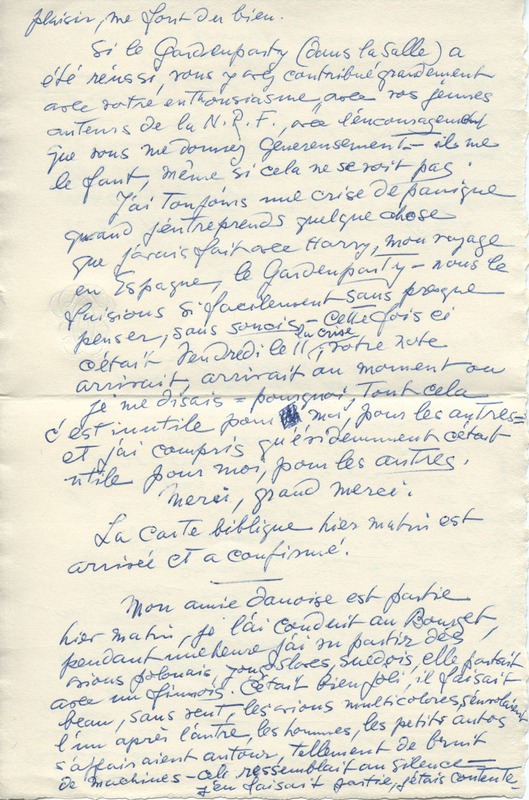 plaisir, me font du bien.
Si le Gardenparty (dans la salle) a
été réussi, vous y avez contribué grandement
avec votre enthousiasme, avec vos jeunes
auteurs de la N.R.F., avec l'encouragement
que vous me donnez généreusement - ils me
le font, même si cela ne serait pas.
J'ai toujours une crise de panique
quand j'entreprends quelque chose
que j'avais fait avec Harry, mon voyage
en Espagne, le Gardenparty - nous le
faisions si facilement sans presque
penser, sans soucis - Cette fois ci
c'était Vendredi le 11, la crise, votre note
arrivait, arrivait au moment où
je me disais = pourquoi, tout cela
c'est inutile pour moi, pour les autres =
et j'ai compris qu'évidemment c'était
utile pour moi, pour les autres.
Merci, grand merci.
La carte biblique hier matin est
arrivée et a confirmé.
Mon amie danoise est partie
hier matin, je l'ai conduit au Bourget,
pendant une heure j'ai vu partir des
avions polonais, yougoslaves, suédois, elle partait
avec un finnois. C'était bien joli, il faisait
beau, sans vent, les avions multicolores, s'envolaient
l'un après l'autre, les hommes, les petits autos
s'affairaient autour, tellement de bruit
de machines - cela ressemblait au silence -
j'en faisait partie, j'étais contente -